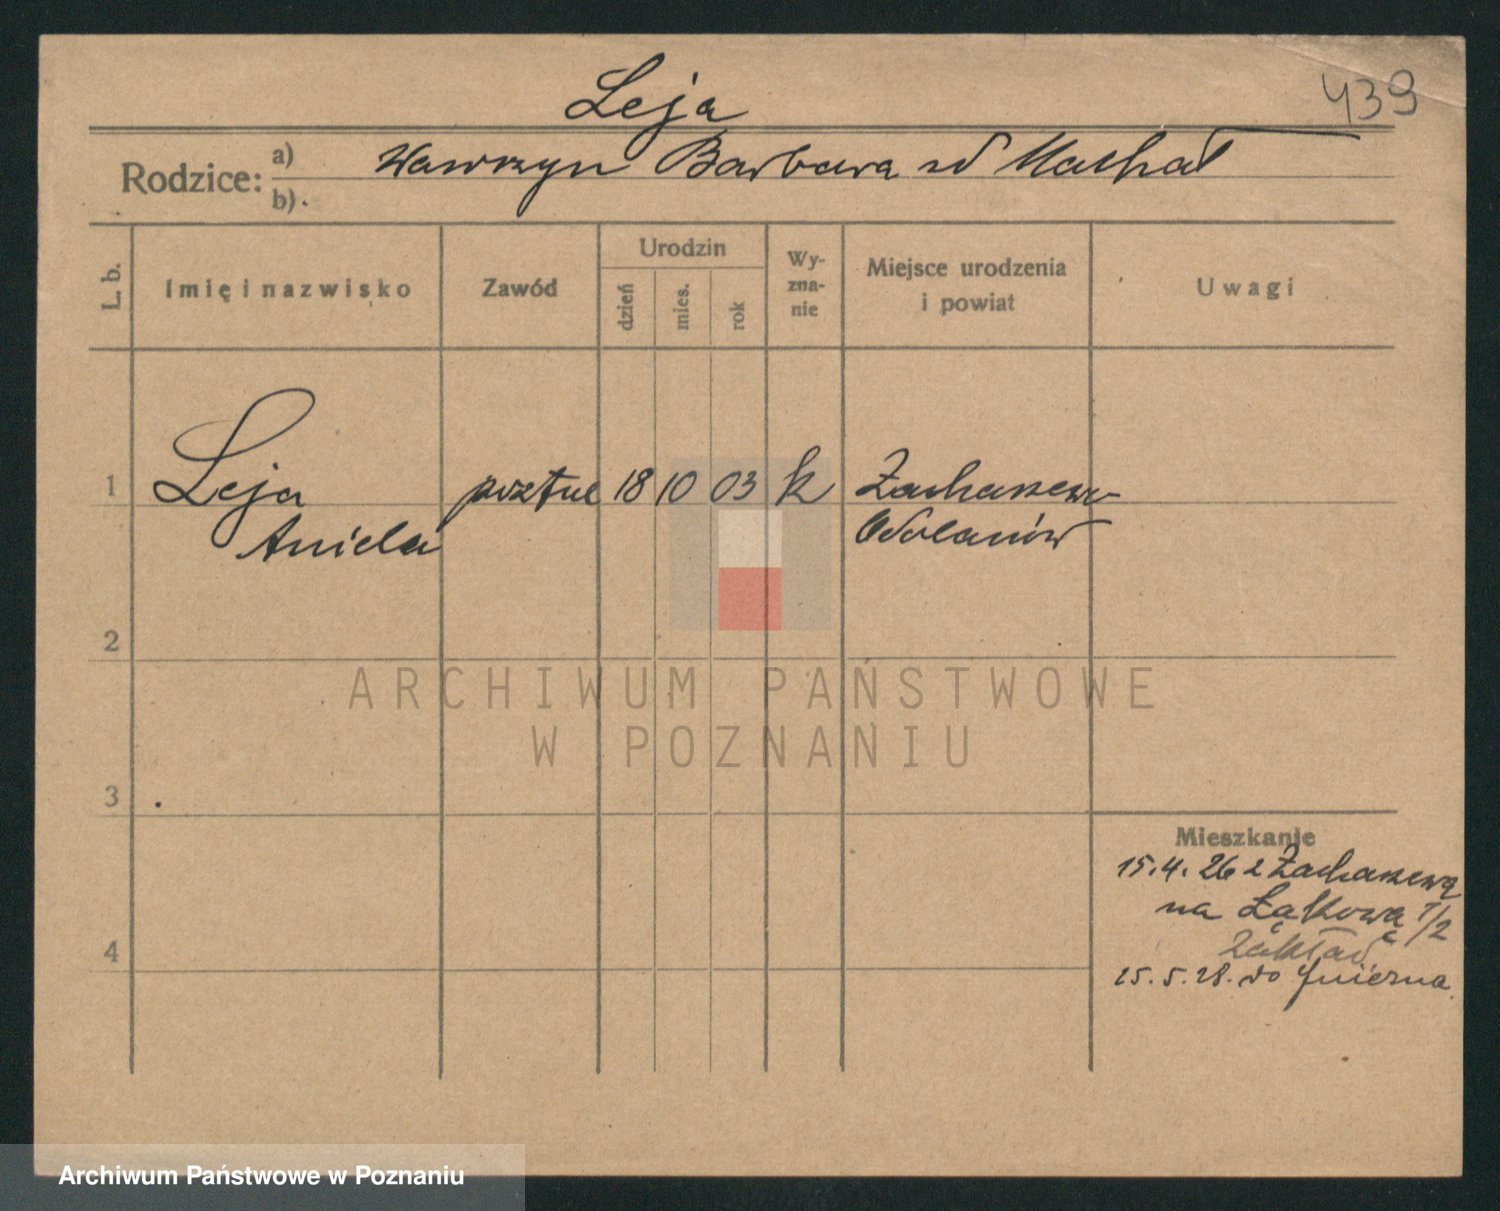 Leja
439
Rodzice: a) Wawrzyn Barbara zd Machał
b)
L. b.
Imię i nazwisko
Zawód
Urodzin
dzień
mies.
rok
Wy-
zna-
nie
Miejsce urodzenia
i powiat
Uwagi
1 Leja 18 10 03 k Zacharzew
Aniela Odolanów
2
ARCHIWUM PAŃSTWOWE
W POZNANIU
3
Mieszkanie
15.4.26 z Zacharzewa
na Łąkową 1/2
4 Zakład
25.5.28. do Gniezna
Archiwum Państwowe w Poznaniu